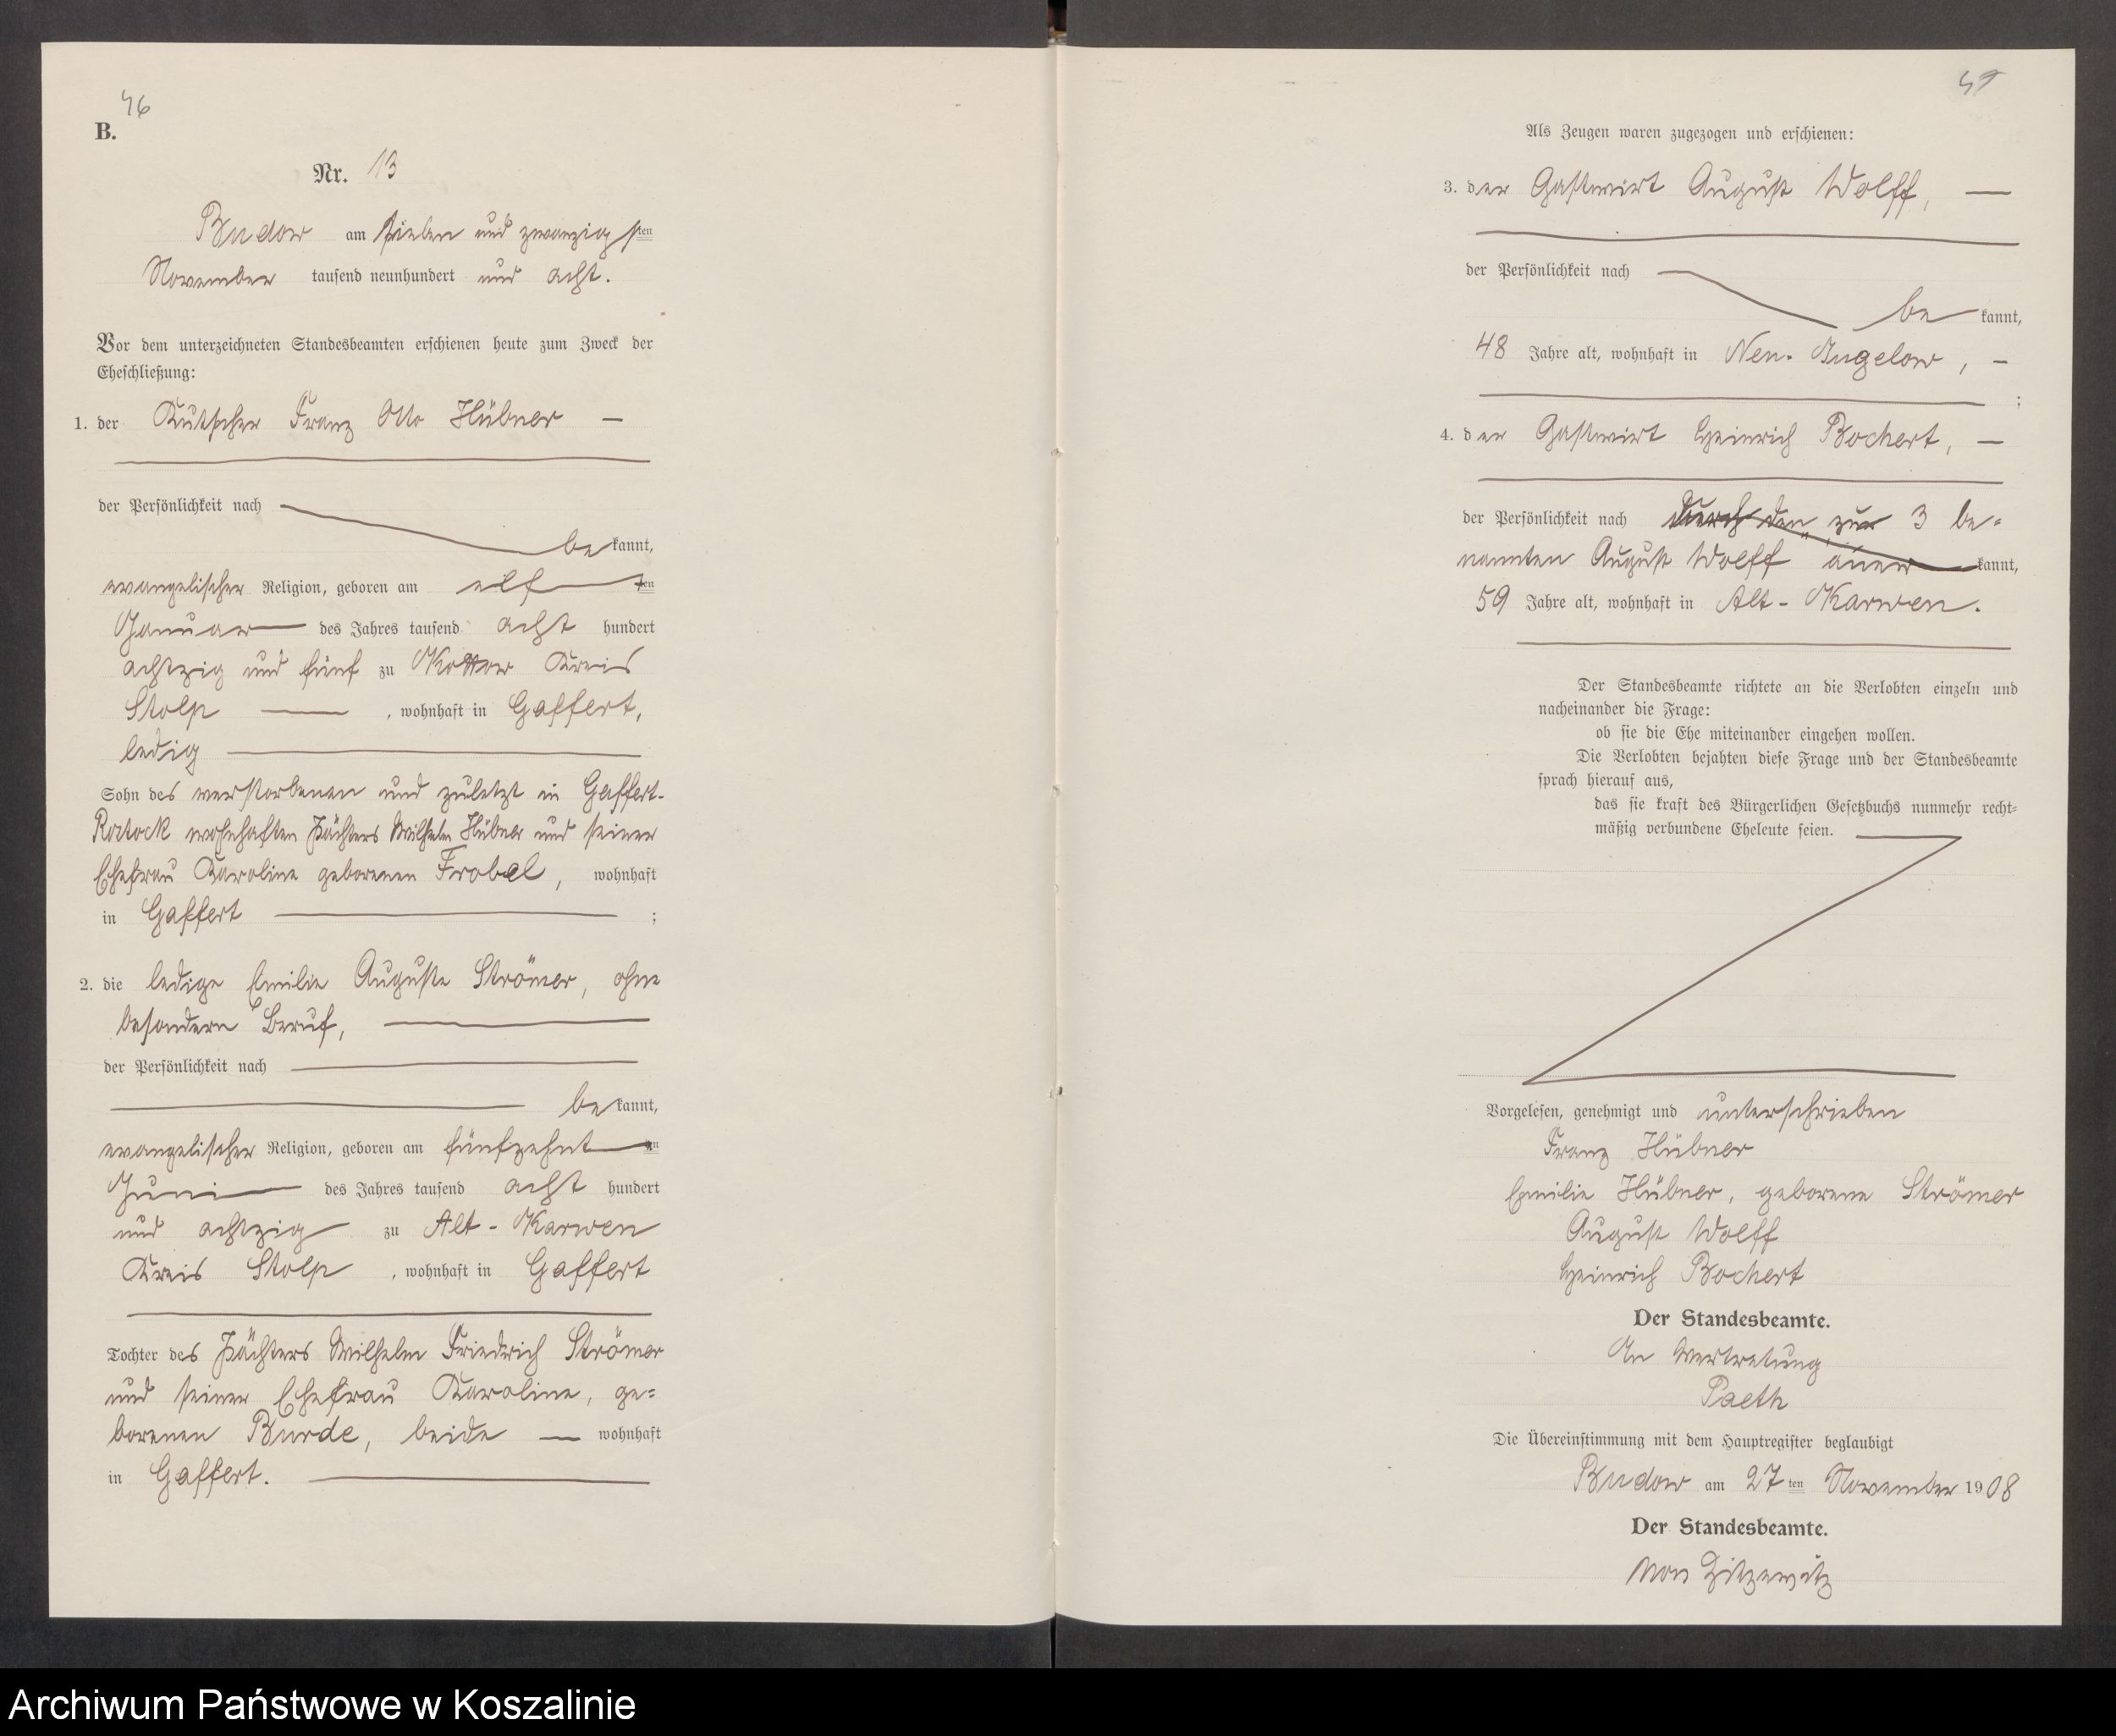 46
B.
Nr. 13
Budow am sieben und zwanzigsten
November tausend neunhundert und acht.
Vor dem unterzeichneten Standesbeamten erschienen heute zum Zweck der
Eheschließung:
1. der Kutscher Franz Otto Hübner —
der Persönlichkeit nach
bekannt,
evangelischer Religion, geboren am elften
Januar des Jahres tausend acht hundert
achtzig und fünf zu Kottow Kreis
Stolp — , wohnhaft in Gaffert,
ledig
Sohn des verstorbenen und zuletzt in Gaffert-
wohnhaften Pächters Wilhelm Hübner und seiner
Ehefrau Karoline geborenen Frobel, wohnhaft
in Gaffert ;
2. die ledige Emilie Auguste Strömer, ohne
besondern Beruf,
der Persönlichkeit nach
bekannt,
evangelischer Religion, geboren am fünfzehnten
Juni des Jahres tausend acht hundert
und achtzig zu Alt-Karwen
Kreis Stolp , wohnhaft in Gaffert
Tochter des Pächters Wilhelm Friedrich Strömer
und seiner Ehefrau Karoline, ge=
borenen Burde, beide — wohnhaft
in Gaffert.
47
Als Zeugen waren zugezogen und erschienen:
3. der Gastwirt August Wolff, —
der Persönlichkeit nach
bekannt,
48 Jahre alt, wohnhaft in Neu-Jugelow, —
;
4. der Gastwirt Heinrich Bochert, —
der Persönlichkeit nach durch den zu 3 be=
nannten August Wolff aner kannt,
59 Jahre alt, wohnhaft in Alt-Karwen.
Der Standesbeamte richtete an die Verlobten einzeln und
nacheinander die Frage:
ob sie die Ehe miteinander eingehen wollen.
Die Verlobten bejahten diese Frage und der Standesbeamte
sprach hierauf aus,
das sie kraft des Bürgerlichen Gesetzbuchs nunmehr recht=
mäßig verbundene Eheleute seien.
Vorgelesen, genehmigt und unterschrieben
Franz Hübner
Emilie Hübner, geborene Strömer
August Wolff
Heinrich Bochert
Der Standesbeamte.
In Vertretung
Paeth
Die Übereinstimmung mit dem Hauptregister beglaubigt
Budow am 27ten November 1908
Der Standesbeamte.
von Zitzewitz
Archiwum Państwowe w Koszalinie